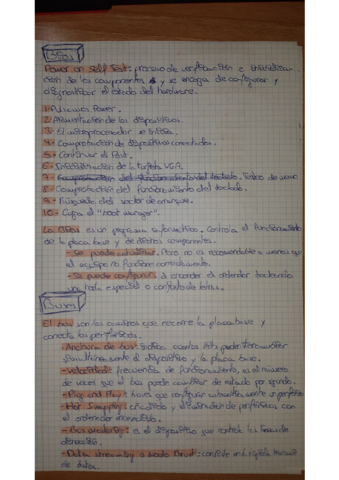 Bios
Power on Self Test: proceso de verificación e inicializa-
ción de los componentes y se encarga de configurar y
diagnosticar el estado del hardware.
1- Pulsamos Power.
2- Alimentación de los dispositivos.
3- El microprocesador se inicia.
4- Comprobación de dispositivos conectados.
5- Continuar el Post.
6- Inicialización de la tarjeta VGA.
7-
8- Comprobación del funcionamiento del teclado.
9- Búsqueda del sector de arranque.
10- Carga el "boot manager".
La BIOS es un programa informático. Controla el funcionamiento
de la placa base y de dichos componentes.
- Se puede actualizar. Pero no es recomendable a menos que
el equipo no funcione correctamente.
- Se puede configurar al encender el ordenador pulsando
una tecla especial o de teclas.
Buses
El bus son las que recorre la placa base y
conecta los periféricos.
- Anchura de bus: cuantos bits puede transmitir
simultáneamente el dispositivo y la placa base.
- Velocidad: frecuencia de funcionamiento, es el número
de veces que el bus puede cambiar de estado por segundo.
- Plug and Play: hacia que configurar automáticamente un periférico
- Hot Swapping: de periféricos con
el ordenador encendido.
- Bus mastering: es el dispositivo que controla
- Data streaming o modo Burst: consiste en
de datos.